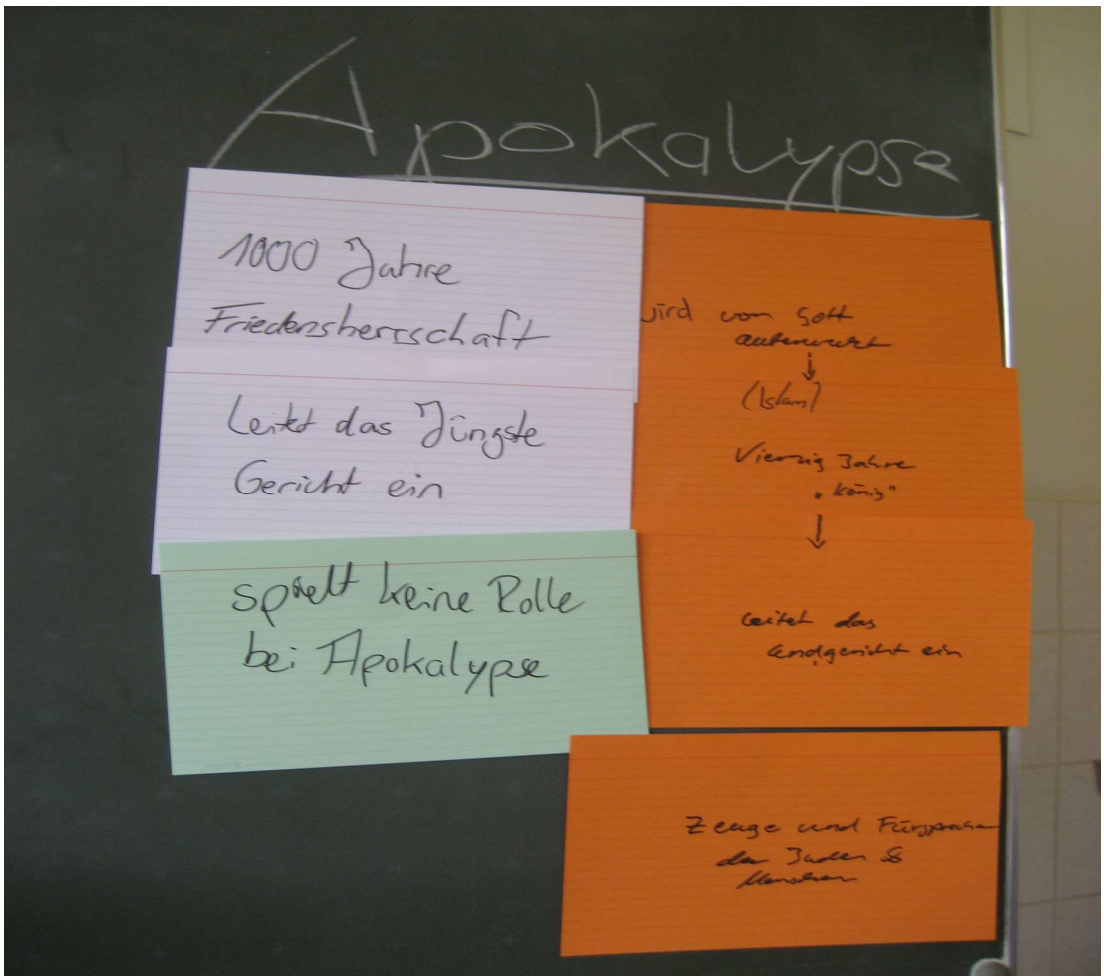 Apokalypse
1000 Jahre
Friedensherrschaft
Leitet das Jüngste
Gericht ein
spielt keine Rolle
bei Apokalypse
wird von Gott
auferweckt
(Islam)
Vierzig Jahre
"König"
Leitet das
Endgericht ein
Zeuge und Fürsprecher
der Juden &
Menschen